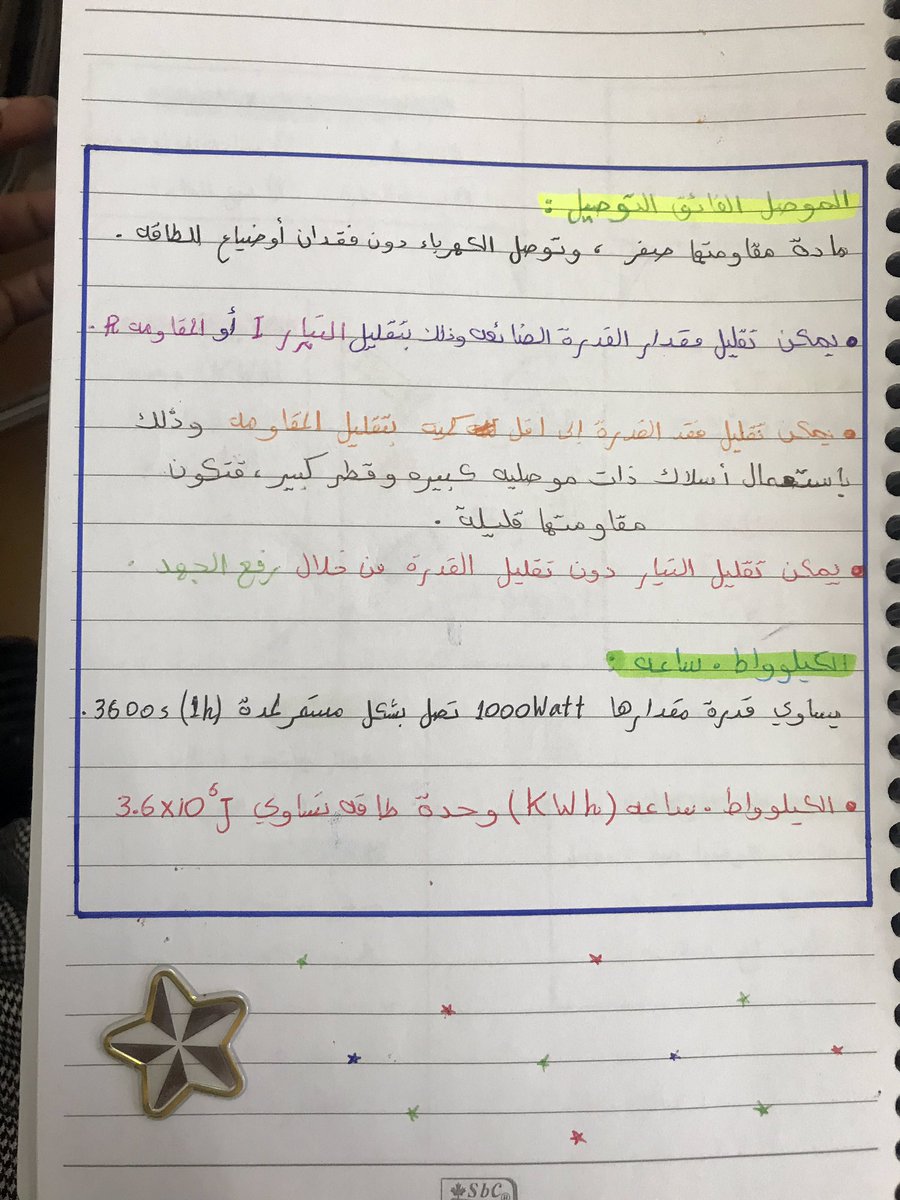 الموصل الفائق التوصيل :
مادة مقاومتها صفر ، وتوصل الكهرباء دون فقدان أو ضياع للطاقه .
• يمكن تقليل مقدار القدرة الضائعه وذلك بتقليل التيار I أو المقاومه R .
• يمكن تقليل فقد القدرة إلى اقل كميه بتقليل المقاومه وذلك
باستعمال أسلاك ذات موصليه كبيره وقطر كبير ، فتكون
مقاومتها قليلة .
• يمكن تقليل التيار دون تقليل القدرة من خلال رفع الجهد .
الكيلوواط . ساعه :
يساوي قدرة مقدارها 1000Watt تصل بشكل مستمر لمدة 3600s (1h) .
• الكيلوواط . ساعه (KWh) وحدة طاقه تساوي 3.6x10⁶J
SbC